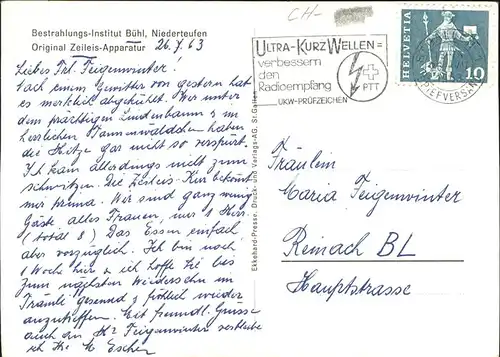 Bestrahlungs-Institut Bühl, Niederteufen
Original Zeileis-Apparatur
26.7.63
Liebes Frl. Feigenwinter!
Nach einem Gewitter von gestern hat
es merklich abgekühlt. Wir unter
dem prächtigen Lindenbaum & im
herrlichen Tannwäldchen haben
die Hitze gar nicht so verspürt.
Ich kam allerdings nicht zum
schwitzen. Die Zeileis-Kur bekommt
mir prima. Wir sind ganz wenig
Gäste, alles Frauen, nur 1 Herr.
(total 8) Das Essen einfach
aber vorzüglich. Ich bin noch
1 Woche hier & ich hoffe Sie bis
zum nächsten Wiedersehn im
Träumli gesund & fröhlich wieder
anzutreffen. Mit freundl. Grüssen
auch an Hr Feigenwinter verbleibe
ich Ihr M Escher
Ekkehard-Presse, Druck- und Verlags-AG, St. Gallen
CH-
ULTRA-KURZWELLEN=
verbessern
den
Radioempfang
UKW-PRÜFZEICHEN
PTT
HELVETIA
10
BRIEFVERSAND
Fräulein
Maria Feigenwinter
Reinach BL
Hauptstrasse